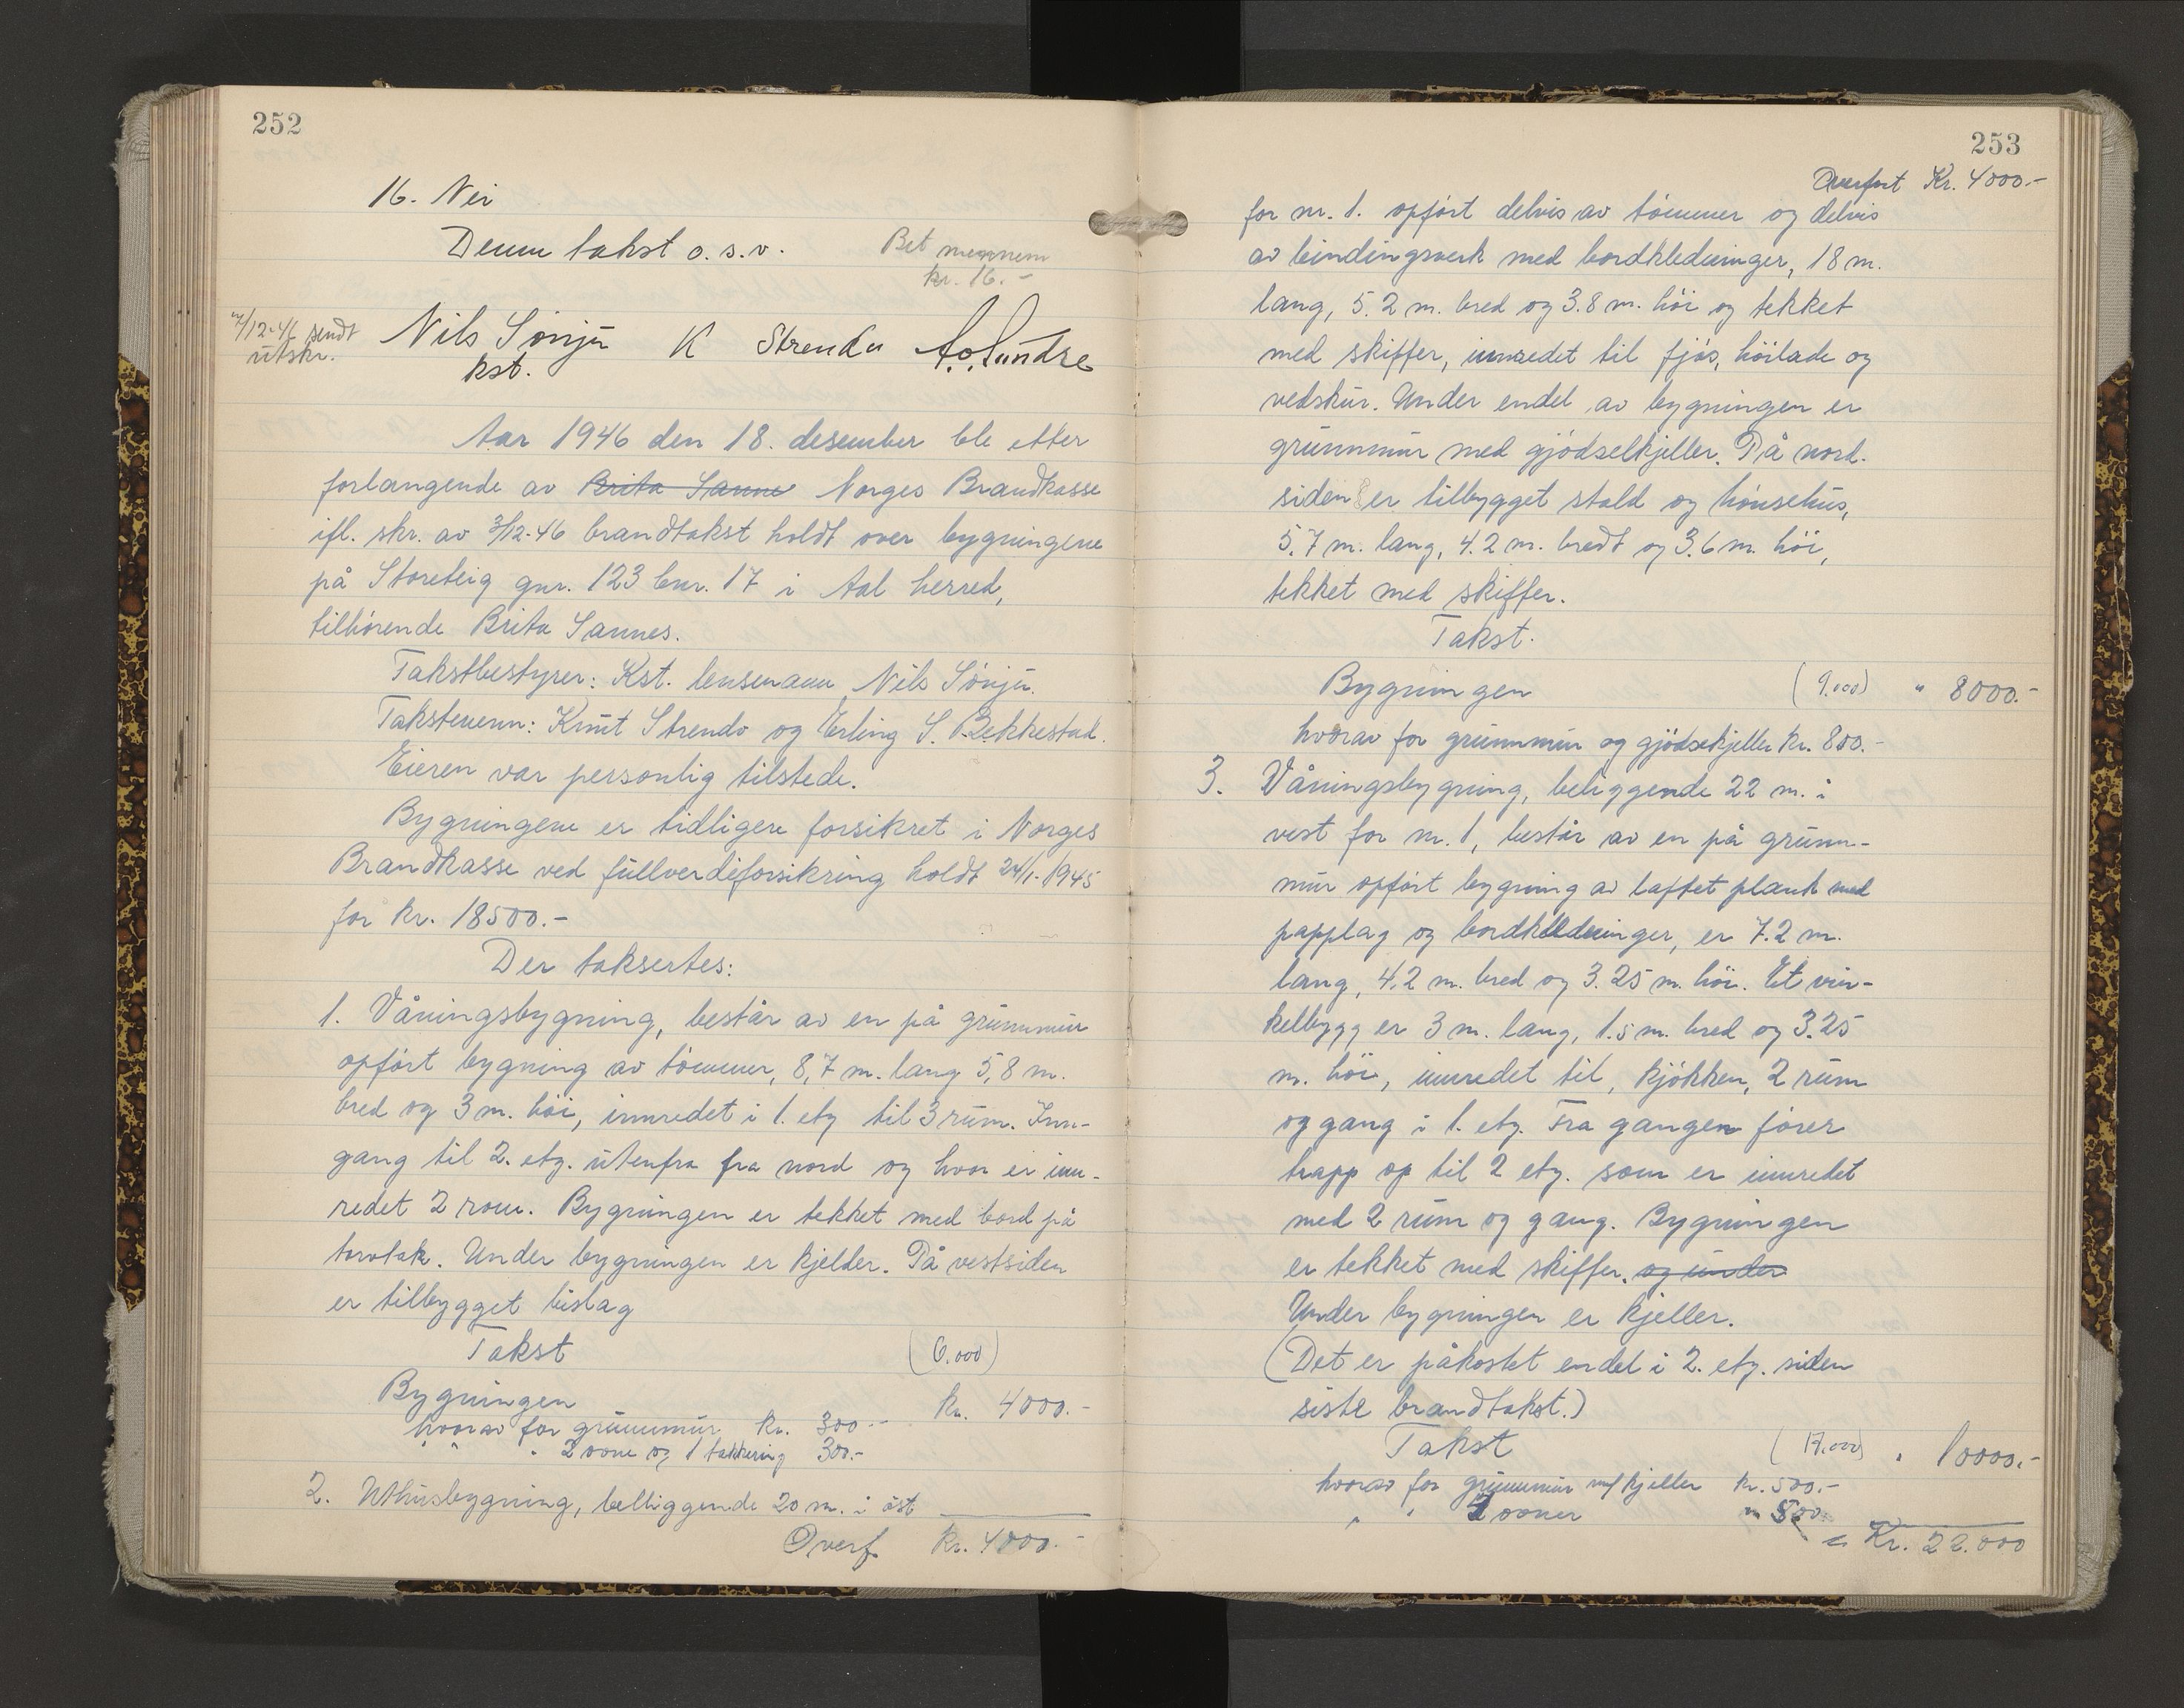 252
16. Nei
Denne takst o.s.v.
Bet mennem
kr. 16.-
/12-46 sendt
utskr.
Nils Sönju K Strendu A. o. Sundre
kst.
Aar 1946 den 18. desember ble etter
forlangende av Brita Sanne Norges Brandkasse
ifl. skr. av 3/12-46 brandtakst holdt over bygningene
på Storeteig gnr. 123 bnr. 17 i Aal herred,
tilhörende Brita Sannes.
Takstbestyrer: Kst. lensmann Nils Sönju.
Takstmenn: Knut Strendo og Erling S. Bekkestad.
Eieren var personlig tilstede.
Bygningene er tidligere forsikret i Norges
Brandkasse ved fullverdiforsikring holdt 24/1-1945
for kr. 18500.-
Der taksertes:
1. Våningsbygning, består av en på grunnmur
opfört bygning av tömmer, 8,7 m. lang 5,8 m.
bred og 3 m. höi, innredet i 1. etg til 3 rum. Inn-
gang til 2. etg. utenfra fra nord og hvor er inn-
redet 2 rom. Bygningen er tekket med bord på
torvtak. Under bygningen er kjelder. På vestsiden
er tilbygget bislag
Takst (6.000)
Bygningen kr. 4000.-
hvorav for grunnmur kr. 300.-
" " " 2 ovne og 1 takkering 300.-
2. Uthusbygning, beliggende 20 m. i öst
Overf. kr. 4000.-
253
Overfört Kr. 4000.-
for nr. 1. opfört delvis av tömmer og delvis
av bindingsverk med bordkledninger, 18 m.
lang, 5.2 m. bred og 3.8 m. höi og tekket
med skiffer, innredet til fjös, höilade og
vedskur. Under endel av bygningen er
grunnmur med gjödselkjeller. På nord-
siden er tilbygget stald og hönsehus,
5.7 m. lang, 4.2 m. bredt og 3.6 m. höi,
tekket med skiffer.
Takst.
Bygningen (9.000) " 8000.-
hvorav for grunnmur og gjödsekjeller kr. 800.-
3. Våningsbygning, beliggende 22 m. i
vest for nr. 1, består av en på grunn-
mur opfört bygning av laftet plank med
papplag og bordkledninger, er 7.2 m.
lang, 4.2 m. bred og 3.25 m. höi. Et vin-
kelbygg er 3 m. lang, 1.5 m. bred og 3.25
m. höi, innredet til, kjökken, 2 rum
og gang i 1. etg. Fra gangen förer
trapp op til 2 etg. som er innredet
med 2 rum og gang. Bygningen
er tekket med skiffer. og under
Under bygningen er kjeller.
(Det er påkostet endel i 2. etg. siden
siste brandtakst.)
Takst (17.000) " 10000.-
hvorav for grunnmur m/ kjeller kr. 500.-
" " 2 ovner " 500.
= Kr. 22.000